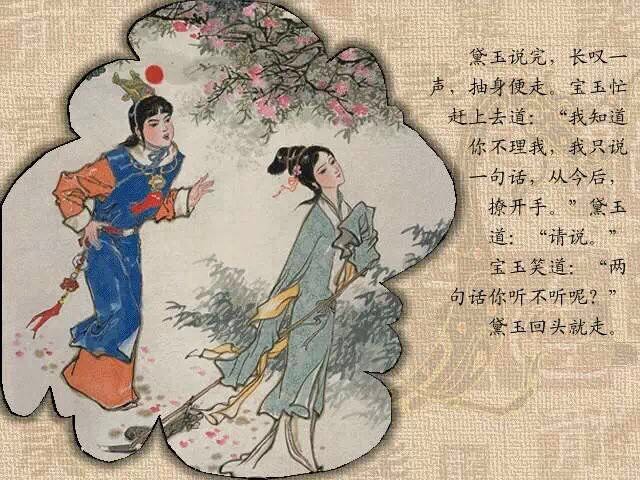 黛玉说完，长叹一
声，抽身便走。宝玉忙
赶上去道：“我知道
你不理我，我只说
一句话，从今后，
撩开手。”黛玉
道：“请说。”
宝玉笑道：“两
句话你听不听呢？”
黛玉回头就走。